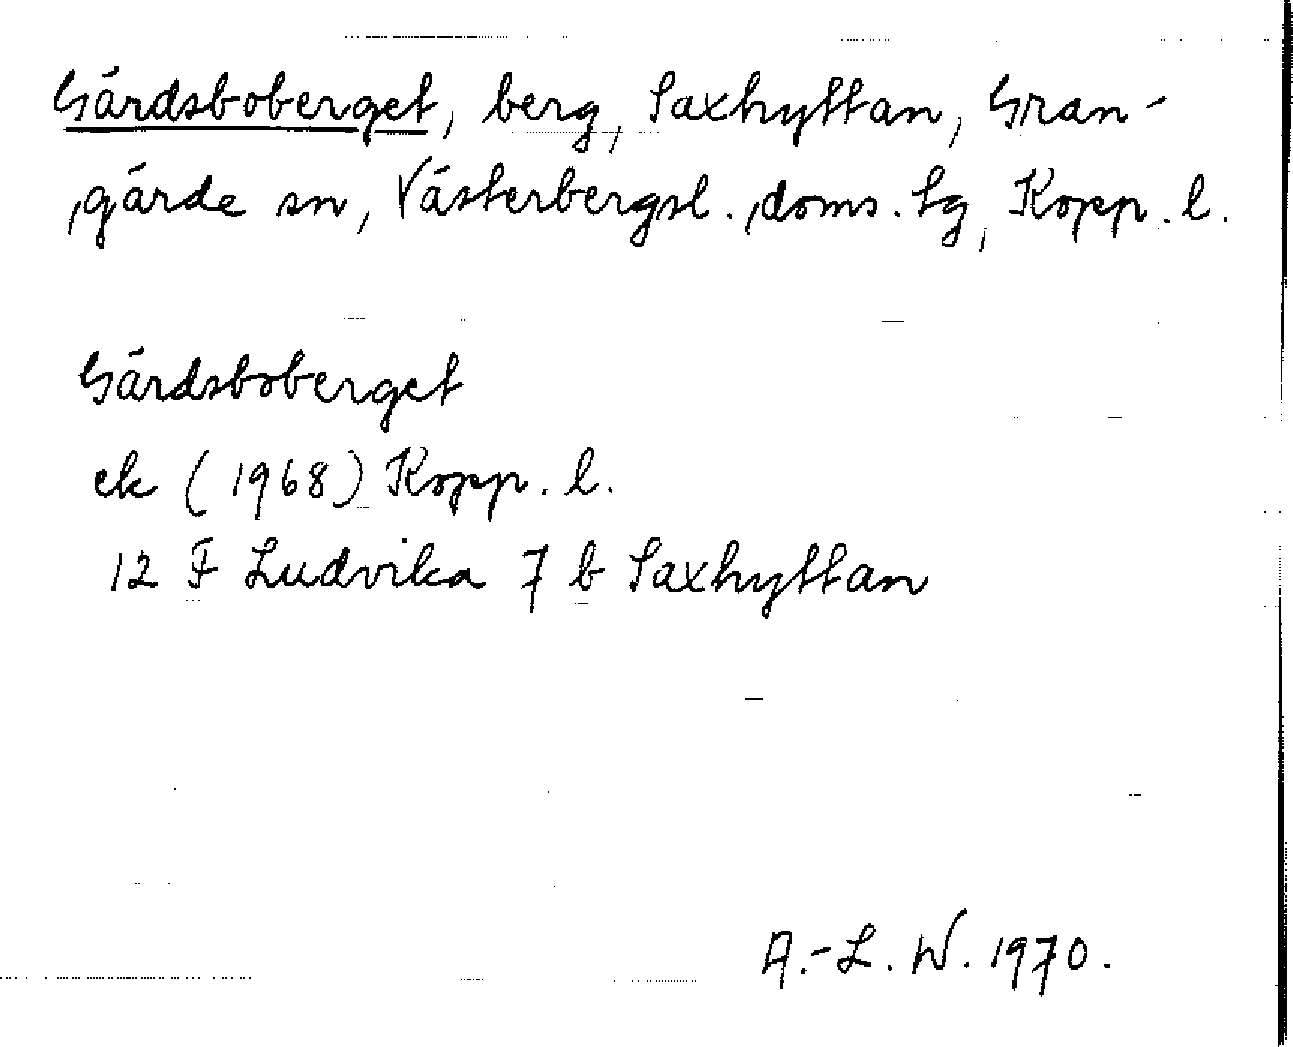 Gårdsboberget, berg, Saxhyttan, Gran-
gärde sn, Västerbergsl. doms. tg, Kopp. l.
Gårdsboberget
ek (1968) Kopp. l.
12 F Ludvika 7 b Saxhyttan
A.-L. W. 1970.